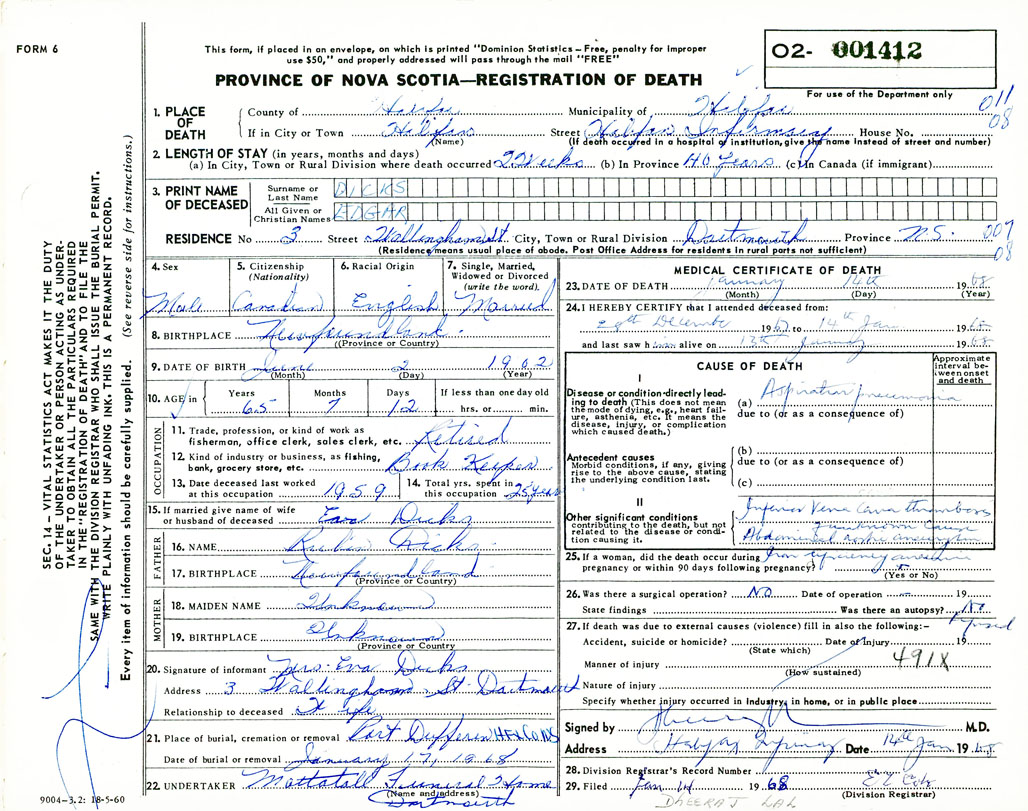 FORM 6
This form, if placed in an envelope, on which is printed "Dominion Statistics – Free, penalty for improper
use $50," and properly addressed will pass through the mail "FREE"
O2- 001412
For use of the Department only
PROVINCE OF NOVA SCOTIA—REGISTRATION OF DEATH
011
08
1. PLACE OF DEATH
County of Halifax Municipality of Halifax
If in City or Town Halifax Street Halifax Infirmary House No.
(Name) (If death occurred in a hospital or institution, give the name instead of street and number)
2. LENGTH OF STAY (in years, months and days)
(a) In City, Town or Rural Division where death occurred 2 Weeks (b) In Province 40 Years (c) in Canada (if immigrant)
3. PRINT NAME OF DECEASED
Surname or Last Name DICKS
All Given or Christian Names EDGAR
RESIDENCE No 3 Street Wallingham St. City, Town or Rural Division Dartmouth Province N.S.
(Residence means usual place of abode. Post Office Address for residents in rural parts not sufficient)
007
08
4. Sex Male
5. Citizenship (Nationality) Canadian
6. Racial Origin English
7. Single, Married, Widowed or Divorced (write the word). Married
8. BIRTHPLACE Newfoundland
(Province or Country)
9. DATE OF BIRTH June 2 1902
(Month) (Day) (Year)
10. AGE in Years 65 Months 7 Days 12 If less than one day old hrs. or min.
OCCUPATION
11. Trade, profession, or kind of work as
fisherman, office clerk, sales clerk, etc. Retired
12. Kind of industry or business, as fishing,
bank, grocery store, etc. Book Keeper
13. Date deceased last worked
at this occupation 1959
14. Total yrs. spent in
this occupation 25 Years
15. If married give name of wife
or husband of deceased Eva Dicks
FATHER
16. NAME Dicks
17. BIRTHPLACE Newfoundland
(Province or Country)
MOTHER
18. MAIDEN NAME Unknown
19. BIRTHPLACE Unknown
(Province or Country
20. Signature of informant Mrs. Eva Dicks
Address 3 Wallingham St Dartmouth
Relationship to deceased Wife
21. Place of burial, cremation or removal Port Dufferin HFX CO NS
Date of burial or removal January 17, 1968
22. UNDERTAKER Mattatall Funeral Home
(Name and address)
Dartmouth
MEDICAL CERTIFICATE OF DEATH
23. DATE OF DEATH January 14th 1968
(Month) (Day) (Year)
24. I HEREBY CERTIFY that I attended deceased from:
December 1967 to 14th Jan. 1968
and last saw him alive on 13th January 1968
CAUSE OF DEATH
Approximate interval between onset and death
I
Disease or condition directly leading to death (This does not mean the mode of dying, e.g., heart failure, asthenia, etc. It means the disease, injury, or complication which caused death.)
(a) Aspiration pneumonia
due to (or as a consequence of)
Antecedent causes
Morbid conditions, if any, giving rise to the above cause, stating the underlying condition last.
(b)
due to (or as a consequence of)
(c)
II
Other significant conditions
contributing to the death, but not related to the disease or condition causing it.
Inferior Vena Cava thrombosis
unknown cause
Abdominal aortic aneurysm
Iron deficiency anaemia
25. If a woman, did the death occur during
pregnancy or within 90 days following pregnancy?
(Yes or No)
26. Was there a surgical operation? NO Date of operation – 19
State findings Was there an autopsy? No
27. If death was due to external causes (violence) fill in also the following:–
Accident, suicide or homicide? Date of Injury 19
(State which)
491X
Manner of injury
(How sustained)
Nature of injury
Specify whether injury occurred in Industry, in home, or in public place
Signed by M.D.
Address Halifax Infirmary Date 14th Jan 1968
28. Division Registrar's Record Number
29. Filed Jan 1968
(Division Registrar)
DHEERAJ LAL
SEC. 14 – VITAL STATISTICS ACT MAKES IT THE DUTY
OF THE UNDERTAKER OR PERSON ACTING AS UNDER-
TAKER TO OBTAIN ALL THE PARTICULARS REQUIRED
IN THE "REGISTRATION OF DEATH" AND TO FILE THE
SAME WITH THE DIVISION REGISTRAR WHO SHALL ISSUE THE BURIAL PERMIT.
WRITE PLAINLY WITH UNFADING INK. THIS IS A PERMANENT RECORD.
Every item of information should be carefully supplied. (See reverse side for instructions.)
9004–3.2: 18-5-60